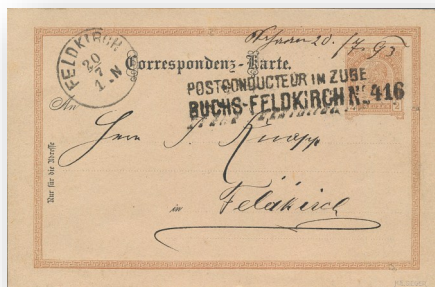 20. /7. 93
FELDKIRCH
20
7
1-N
Correspondenz-Karte.
POSTCONDUCTEUR IM ZUGE
BUCHS-FELDKIRCH No 416
An
Herrn J. Knapp
in Feldkirch
Nur für die Adresse